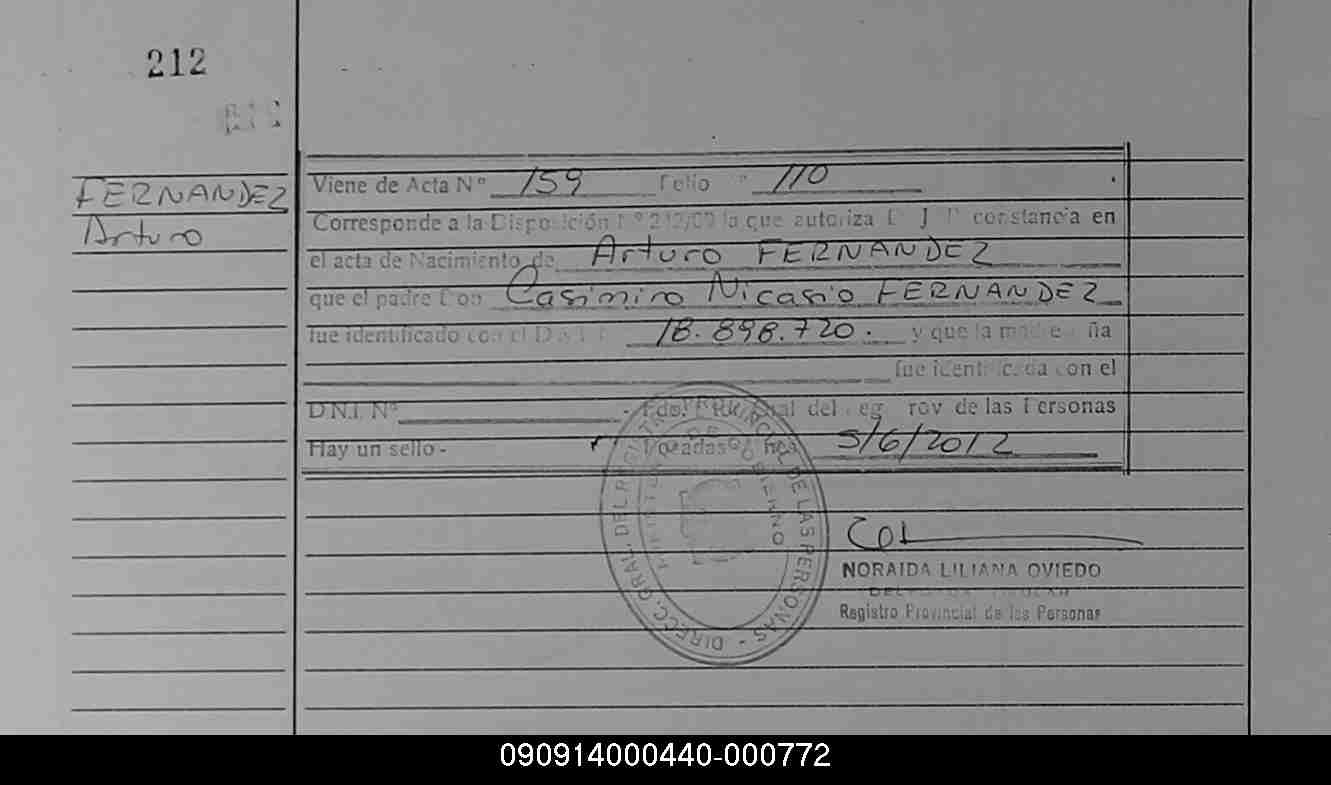 212
FERNANDEZ
Arturo
Viene de Acta Nº 159 Folio 110
Corresponde a la Disposición Nº 212/09 la que autoriza constancia en
el acta de Nacimiento de Arturo FERNANDEZ
que el padre Don Casimiro Nicasio FERNANDEZ
fue identificado con el D.N.I. 18.898.720. y que la madre
fue identificada con el
D.N.I. Nº - Fdo. del Reg Prov de las Personas
Hay un sello - Posadas 5/6/2012
DIRECC. GRAL. DEL REGISTRO PROVINCIAL DE LAS PERSONAS -
DE GOBIERNO
NORAIDA LILIANA OVIEDO
Registro Provincial de las Personas
090914000440-000772